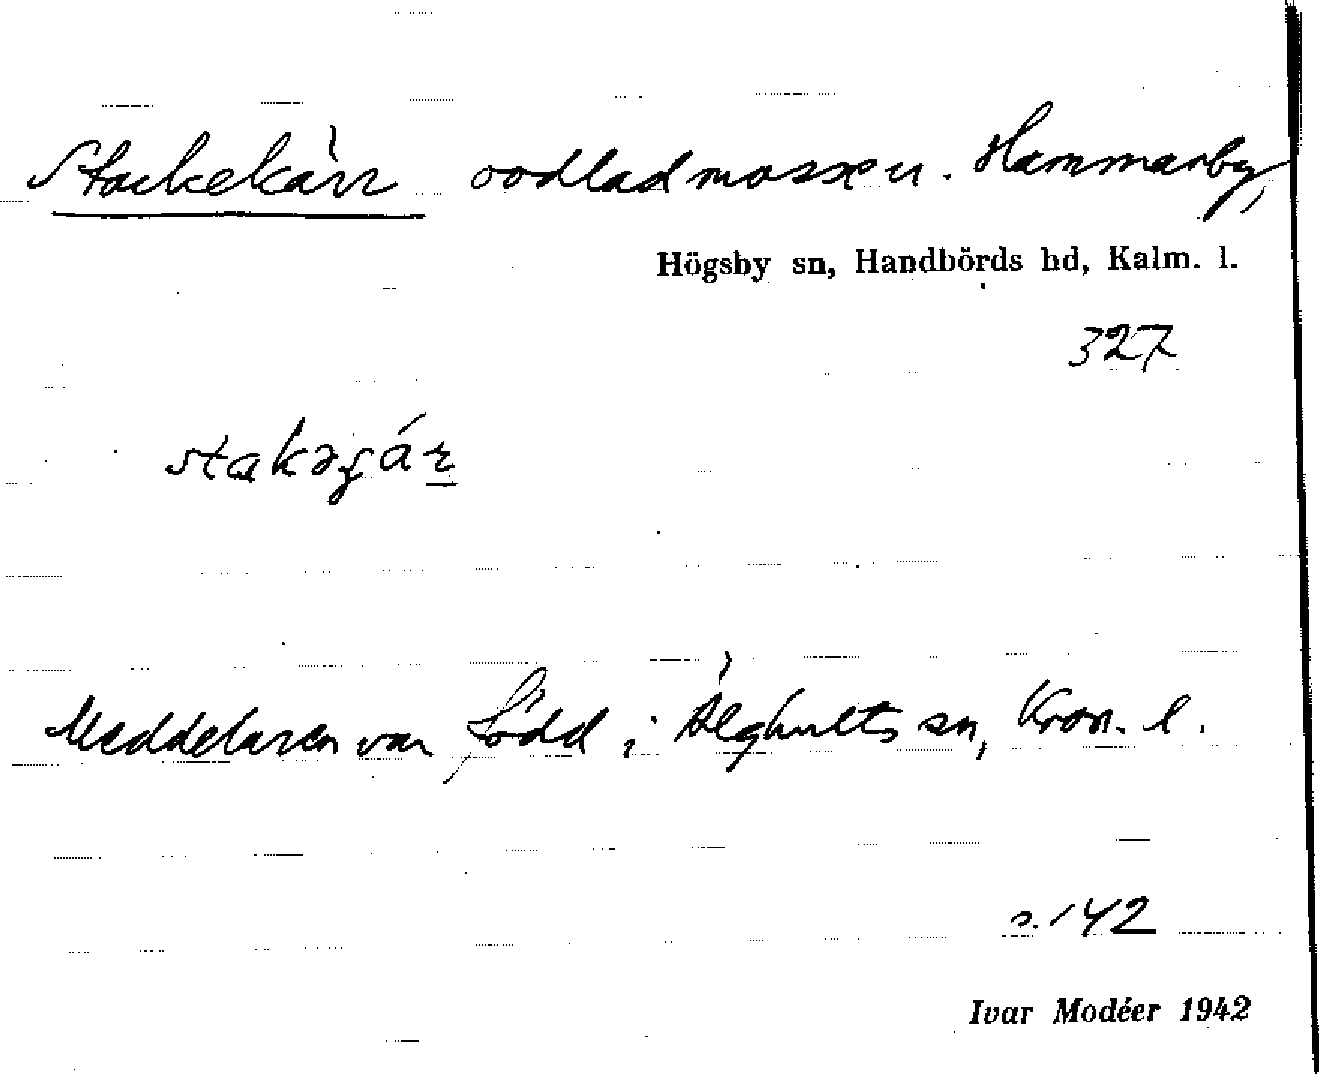 Stackekärr oodlad mosse u. Hammarby,
Högsby sn, Handbörds hd, Kalm. l.
327
Meddelaren var född i Älghults sn, Kron. l.
s. 142
Ivar Modéer 1942